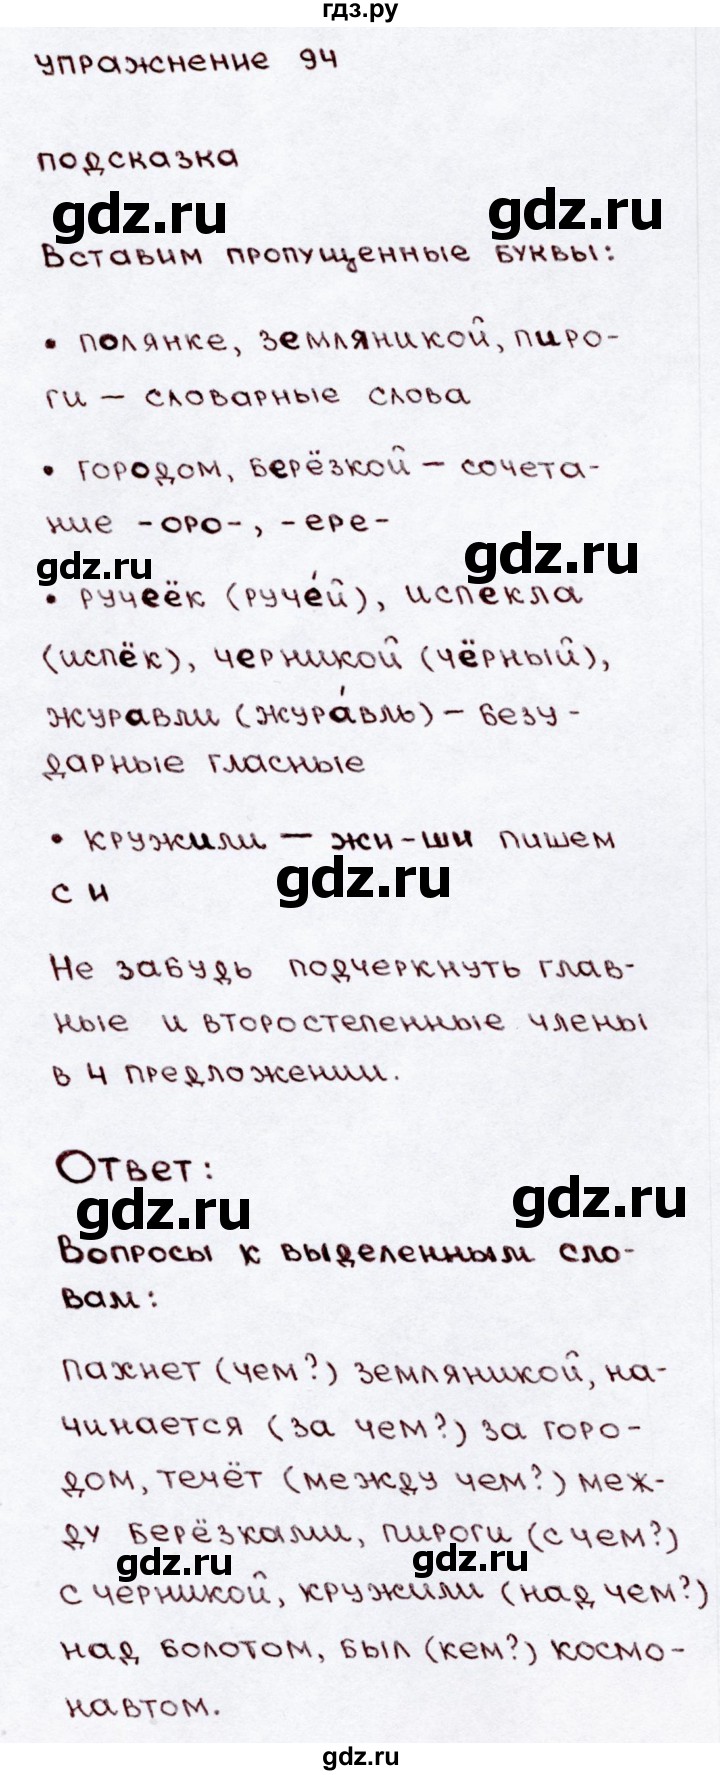 гдз.ру
упражнение 94
подсказка
gdz.ru gdz.ru
Вставим пропущенные буквы:
• полянке, земляникой, пиро-
ги – словарные слова
• городом, берёзкой – сочета-
ние -оро-, -ере-
gdz.ru gdz.ru
• ручеёк (ручéй), испекла
(испёк), черникой (чёрный),
журавли (журáвль) – безу-
дарные гласные
• кружили – жи-ши пишем
с и
gdz.ru
Не забудь подчеркнуть глав-
ные и второстепенные члены
в 4 предложении.
Ответ:
gdz.ru gdz.ru
Вопросы к выделенным сло-
вам:
пахнет (чем?) земляникой, на-
чинается (за чем?) за горо-
дом, течёт (между чем?) меж-
ду берёзками, пироги (с чем?)
gdz.ru gdz.ru
с черникой, кружили (над чем?)
над болотом, был (кем?) космо-
навтом.
gdz.ru